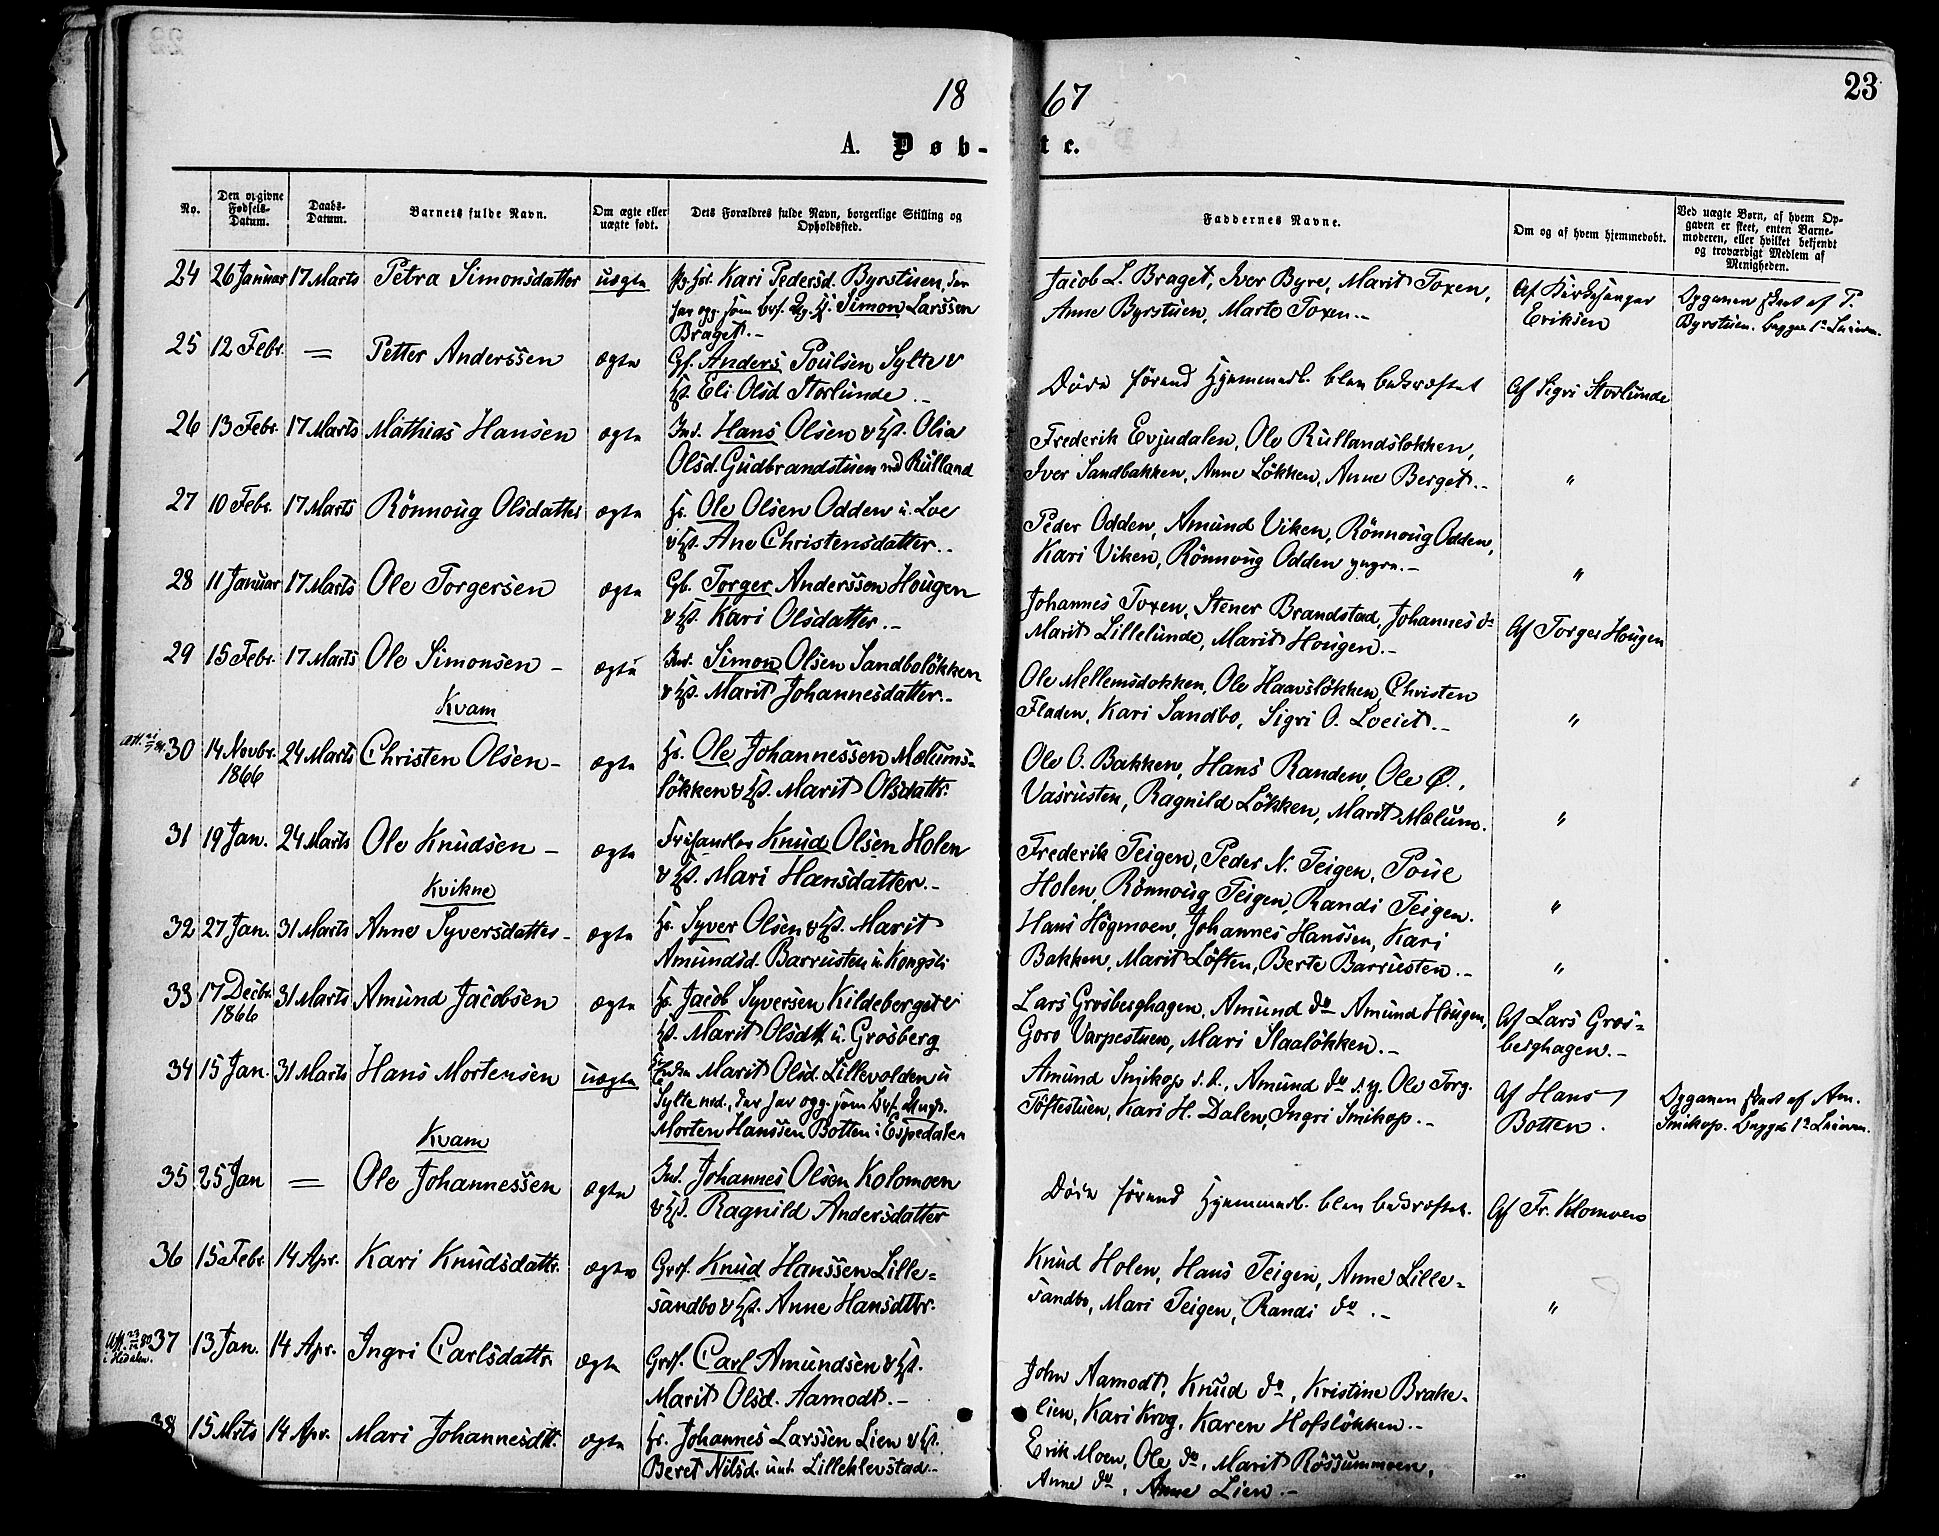 23
18 67
A. Døb- te.
No.
Den opgivne Fødsels-Datum.
Daabs-Datum.
Barnets fulde Navn.
Om ægte eller uægte født.
Dets Forældres fulde Navn, borgerlige Stilling og Opholdssted.
Faddernes Navne.
Om og af hvem hjemmedøbt.
Ved uægte Børn, af hvem Opgaven er skeet, enten Barnemoderen, eller hvilket bekjendt og troværdigt Medlem af Menigheden.
24 26 Januar 17 Marts Petra Simonsdatter uægte Kari Pedersd. Byrstuen, der
har opg. som brf. Simon Larssen
Braget.-
Jacob L. Braget, Iver Byre, Marit Toxen,
Anne Byrstuen, Marte Toxen.-
Af Kirkesanger
Eriksen
Opgaven skeet af P.
Byrstuen. begges 1ste Leierm.
25 12 Febr. = Petter Anderssen ægte Gf. Anders Poulsen Sylte &
Hst. Eli Olsd. Storlunde.-
Døde førend Hjemmed. blev bekræftet
Af Sigri Storlunde
26 13 Febr. 17 Marts Mathias Hansen ægte Ind. Hans Olsen & Hst. Olia
Olsd. Gudbrandstuen nd Rulland
Frederik Evjudalen, Ole Rullandsløkken,
Iver Sandbakken, Anne Løkken, Anne Berget.-
"
27 10 Febr. 17 Marts Rönnoug Olsdatter ægte Hs. Ole Olsen Odden u. Loe
& Hst. Ane Christensdatter.-
Peder Odden, Amund Viken, Rönnoug Odden,
Kari Viken, Rönnoug Odden yngre.-
"
28 11 Januar 17 Marts Ole Torgersen ægte Gb. Torger Anderssen Hougen
& Hst. Kari Olsdatter.-
Johannes Toxen, Stener Brandstad, Johannes do
Marit Lillelunde, Marit Hougen.-
Af Torger Hougen
29 15 Febr. 17 Marts Ole Simonsen - ægte Ind. Simon Olsen Sandboløkken
& Hst. Marit Johannesdatter.-
Ole Mellemsdokken, Ole Haavsløkken, Christen
Fladen, Kari Sandbo, Sigri O. Loeiet.-
"
Kvam
30 14 Novbr. 24 Marts Christen Olsen - ægte Hs. Ole Johannessen Mælums-
1866
løkken & Hst. Marit Olsdattr.
Ole O. Bakken, Hans Randen, Ole Ø.,
Vasrusten, Ragnild Løkken, Marit Mælum.
"
31 19 Jan. 24 Marts Ole Knudsen - ægte Frihandler Knud Olsen Holen
& Hst. Mari Hansdatter.-
Frederik Teigen, Peder N. Teigen, Poul
Holen, Rönnoug Teigen, Randi Teigen.
"
Kvikne
32 27 Jan. 31 Marts Anne Syversdatter - ægte Hs. Syver Olsen & Hst. Marit
Amundsd. Barrusten u. Kongsli
Hans Högmoen, Johannes Hanssen, Kari
Bakken, Marit Løften, Berte Barrusten.-
"
33 17 Decbr. 31 Marts Amund Jacobsen ægte Hs. Jacob Syversen Kildeberget &
1866
Hst. Marit Olsdtt. u. Grosberg
Lars Grosberghagen, Amund do Amund Hougen,
Goro Varpestuen, Mari Slaaløkken.-
Af Lars Gros-
berghagen.-
34 15 Jan. 31 Marts Hans Mortensen uægte Marit Olsd. Lillevolden u
Sylte ned., der har opg. som brf. Ungk.
Morten Hanssen Botten i Espedalen
Amund Smikop d. Æ., Amund do d. y. Ole Torg.
Toftestuen, Kari H. Dalen, Ingri Smikop.-
Af Hans
Botten.
Opgaven skeet af Am.
Smikop. begges 1ste Leierm.
Kvam
35 25 Jan = Ole Johannessen ægte Ind. Johannes Olsen Kolomoen
& Hst. Ragnild Andersdatter
Døde førend Hjemmed. blev bekræftet.
Af Fr. Klomoen
36 15 Febr. 14 Apr. Kari Knudsdattr. ægte Grdf. Knud Hanssen Lille-
sandbo & Hst. Anne Hansdttr.
Knud Holen, Hans Teigen, Anne Lille-
sandbo, Mari Teigen, Randi do.-
"
37 13 Jan. 14 Apr. Ingri Carlsdattr. ægte Grdf. Carl Amundsen & Hst.
Marit Olsd. Aamodt.-
John Aamodt, Knud do, Kristine Brake-
lien, Kari Krog, Karen Hofsløkken.-
38 15 Mrts 14 Apr. Mari Johannesdtt. ægte Hs. Johannes Larssen Lien & Hst.
Beret Nilsd. unt. Lilleklevstad.-
Erik Moen, Ole do, Marit Røssummoen,
Anne do, Anne Lien.-